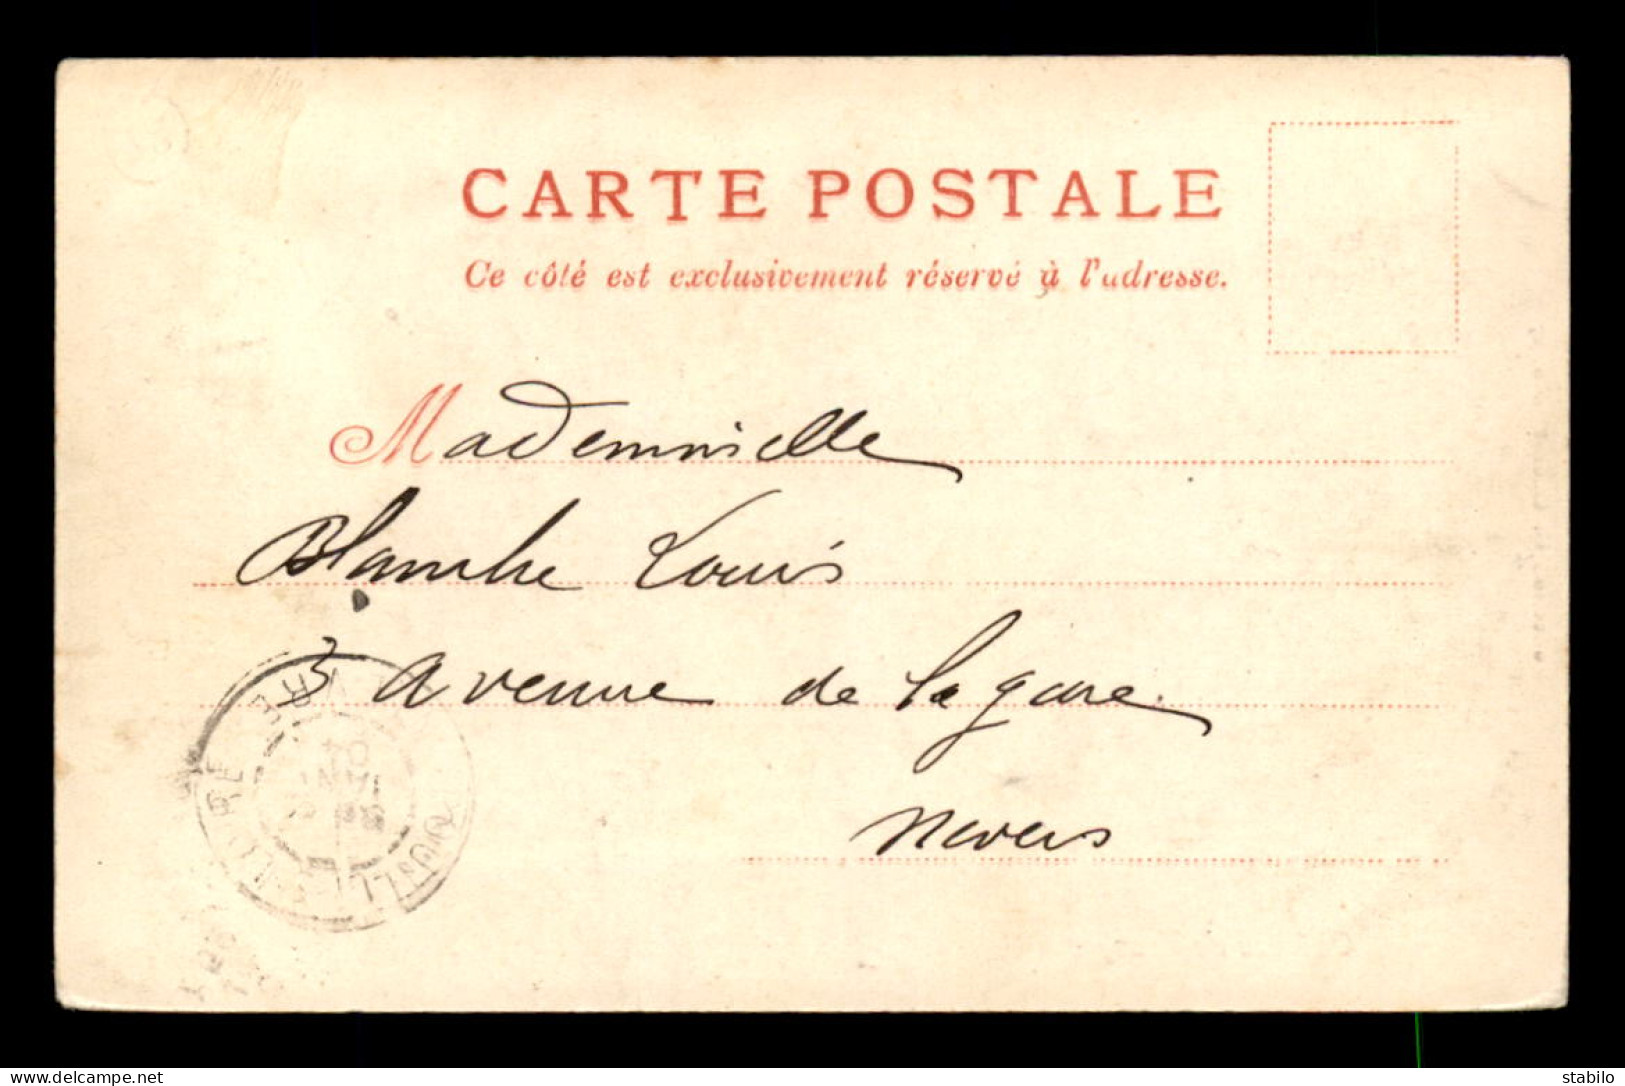 CARTE POSTALE
Ce côté est exclusivement réservé à l'adresse.
Mademoiselle
Blanche Louis
3 Avenue de la gare.
Nevers
04
www.delcampe.net
stabilo